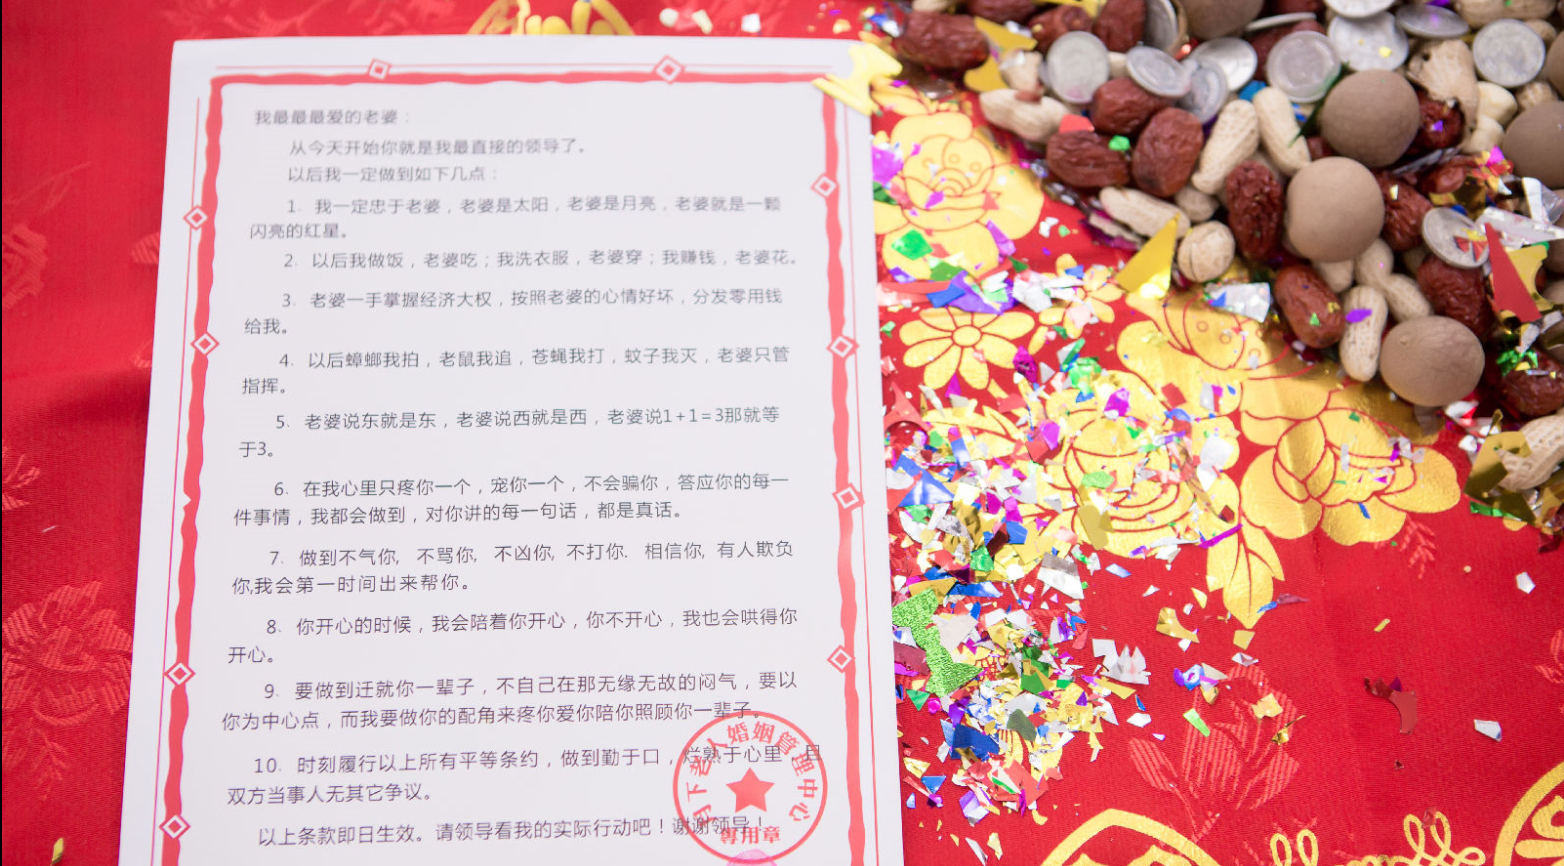 我最最最爱的老婆：
从今天开始你就是我最直接的领导了。
以后我一定做到如下几点：
1. 我一定忠于老婆，老婆是太阳，老婆是月亮，老婆就是一颗
闪亮的红星。
2. 以后我做饭，老婆吃；我洗衣服，老婆穿；我赚钱，老婆花。
3. 老婆一手掌握经济大权，按照老婆的心情好坏，分发零用钱
给我。
4. 以后蟑螂我拍，老鼠我追，苍蝇我打，蚊子我灭，老婆只管
指挥。
5. 老婆说东就是东，老婆说西就是西，老婆说1+1=3那就等
于3。
6. 在我心里只疼你一个，宠你一个，不会骗你，答应你的每一
件事情，我都会做到，对你讲的每一句话，都是真话。
7. 做到不气你, 不骂你, 不凶你, 不打你. 相信你, 有人欺负
你,我会第一时间出来帮你。
8. 你开心的时候，我会陪着你开心，你不开心，我也会哄得你
开心。
9. 要做到迁就你一辈子，不自己在那无缘无故的闷气，要以
你为中心点，而我要做你的配角来疼你爱你陪你照顾你一辈子。
10. 时刻履行以上所有平等条约，做到勤于口，烂熟于心里，且
双方当事人无其它争议。
以上条款即日生效。请领导看我的实际行动吧！谢谢领导！
月下老人婚姻管理中心
专用章